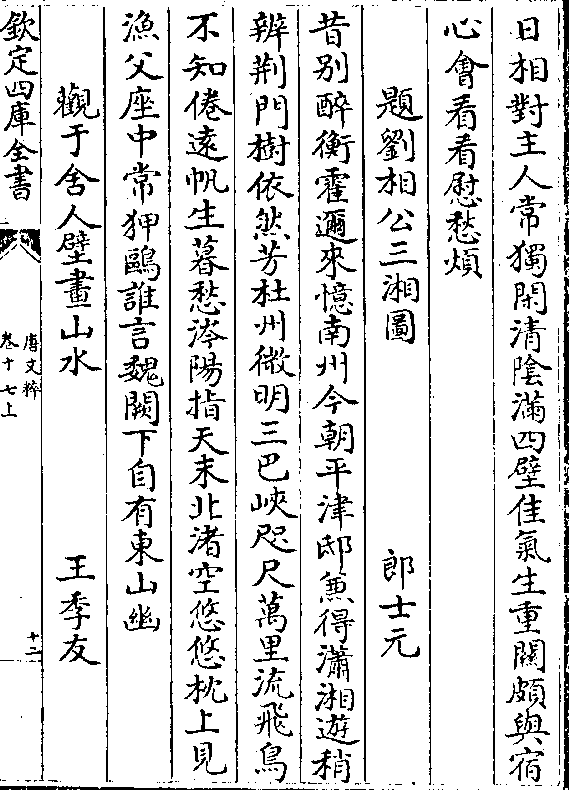 日相對主人常獨閑清陰滿四壁佳氣生重關頗與宿
心會看看慰愁煩
題劉相公三湘圖 郎士元
昔別醉衡霍邇來憶南州今朝平津邸兼得瀟湘遊稍
辨荆門樹依然芳杜州微明三巴峽咫尺萬里流飛鳥
不知倦遠帆生暮愁涔陽指天末北渚空悠悠枕上見
漁父座中常狎鷗誰言魏闕下自有東山幽
觀于舍人壁畫山水 王季友
欽定四庫全書
唐文粹
卷十七上
十二